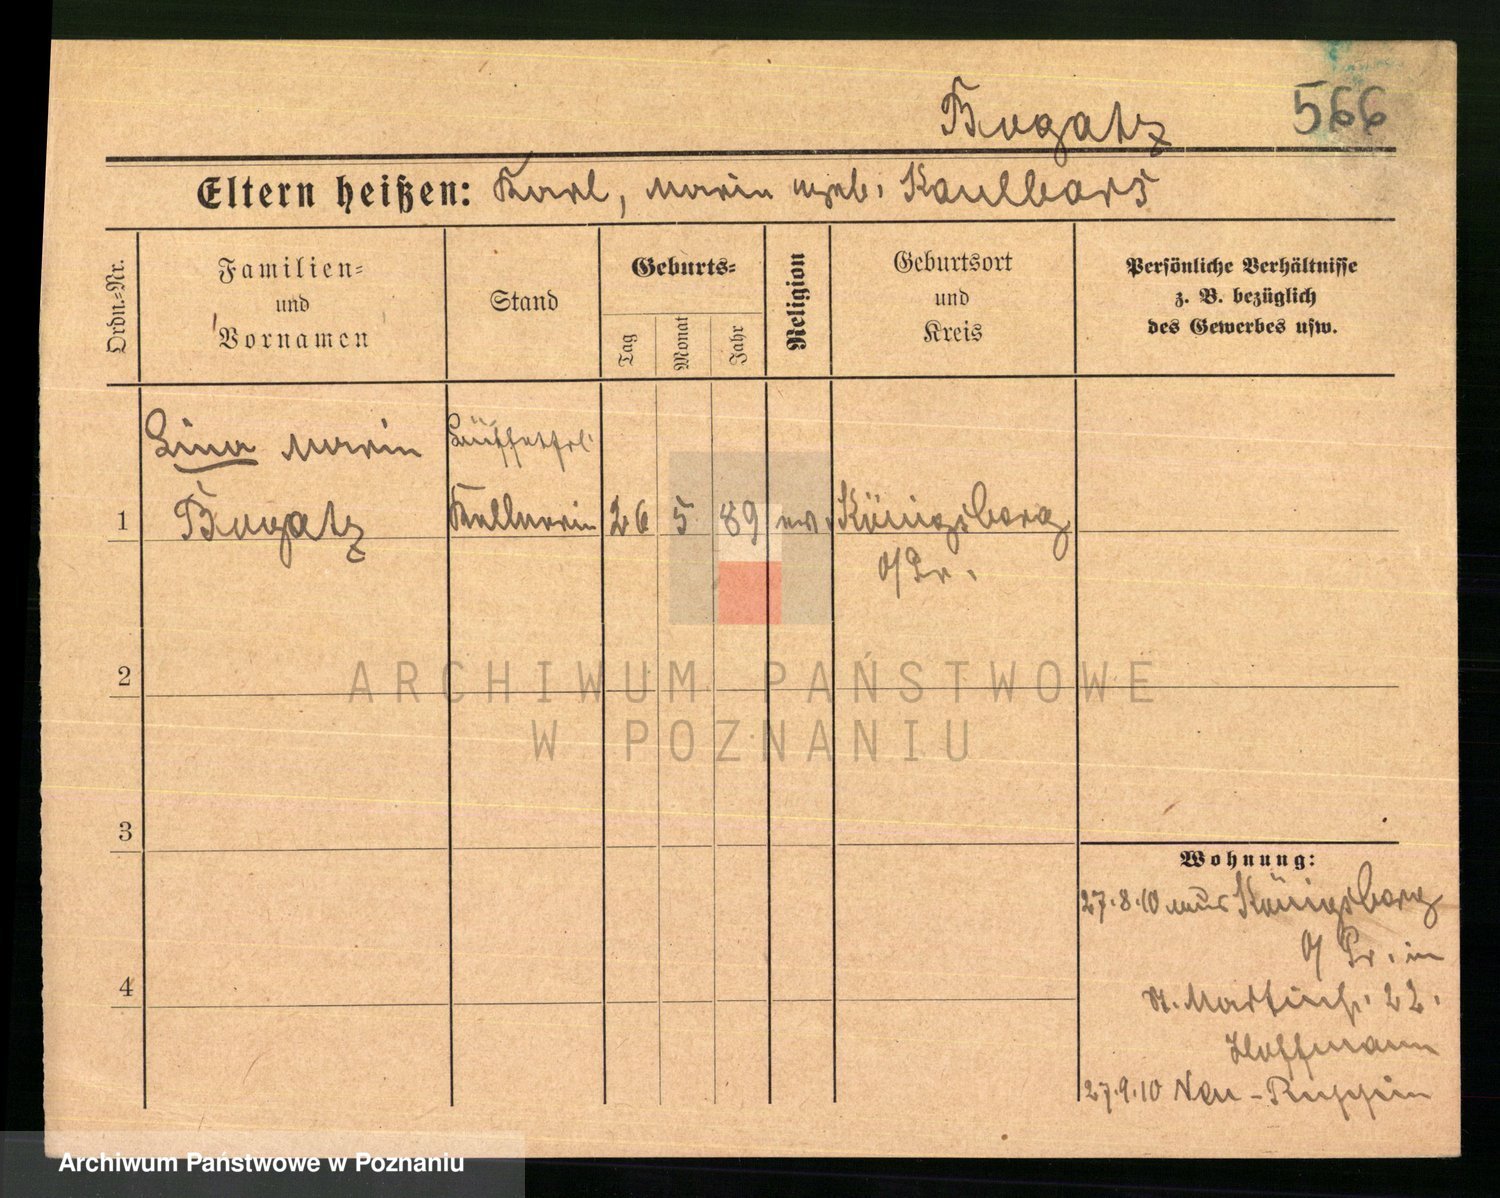 Bugatz 566
Eltern heißen: Karl, Marie geb. Kaulbars
Ordn.-Nr.
Familien-
und
Vornamen
Stand
Geburts-
Tag
Monat
Jahr
Religion
Geburtsort
und
Kreis
Persönliche Verhältnisse
z. B. bezüglich
des Gewerbes usw.
Lina Marie Büffetfrl.
1 Bugatz Kellnerin 26 5 89 ev. Königsberg
O/Pr.
2
3
4
Wohnung:
27.8.10 aus Königsberg
O/Pr. in
St. Martinstr. 22.
Hoffmann
27.9.10 Neu-Ruppin
ARCHIWUM PAŃSTWOWE
W POZNANIU
Archiwum Państwowe w Poznaniu